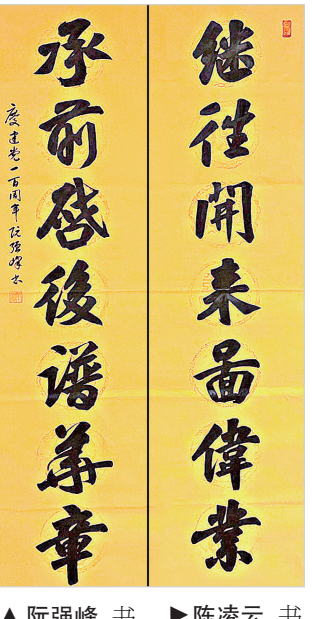 继往開来圖偉業
承前啓後谱華章
慶建党一百周年阮强峰书
▲阮强峰 书 ▶陈凌云 书